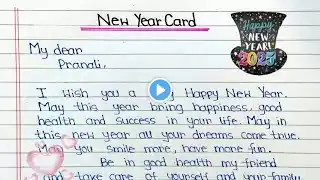 New Year Card
Happy
NEW
YEAR!
2025
My dear
Pranali,
I wish you a Happy New Year.
May this year bring happiness, good
health and success in your life. May in
this new year all your dreams come true.
May you smile more, have more fun.
Be in good health my friend
and take care of yourself and your family